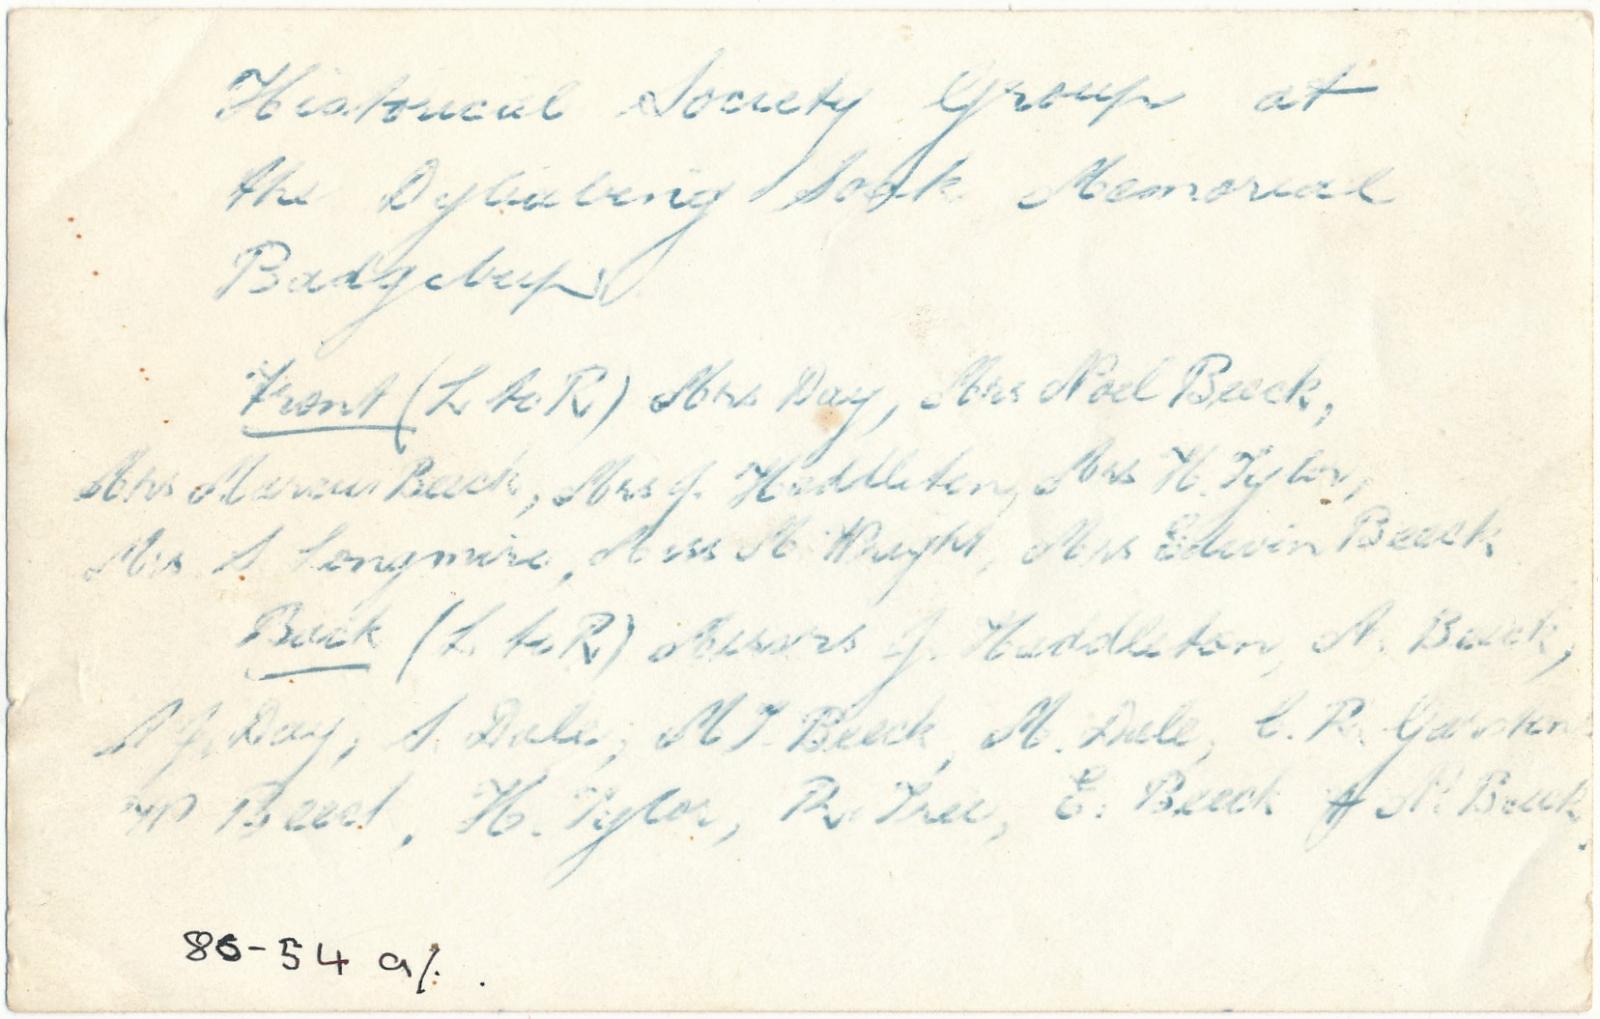 Historical Society Group at
the Dyliabing Soak Memorial
Badgebup.
Front (L to R) Mrs Day, Mrs Noel Beeck,
Mrs Marcus Beeck, Mrs J. Haddleton, Mrs H. Tylor,
Mrs S Longmire, Miss M. Wright, Mrs Edwin Beeck
Back (L to R) Messrs J. Haddleton, N. Beeck,
A J. Day, S. Dale, M T. Beeck, M. Dale, C. R. Garstone
W Beeck, H. Tylor, R. Tree, E. Beeck & M. Beeck.
80-54 a/.